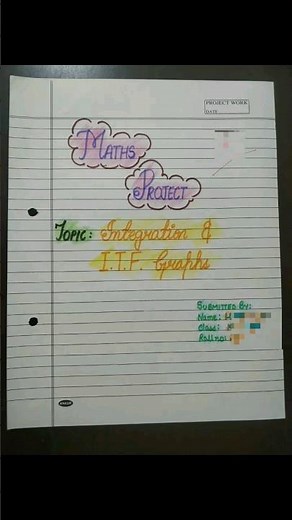 PROJECT WORK
DATE
MATHS
PROJECT
TOPIC: Integration &
I.T.F. Graphs
SUBMITTED BY:
Name:
Class:
Rollno.: